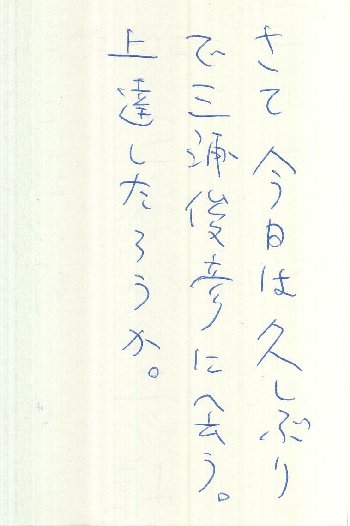 さて今日は久しぶり
で三浦俊彦に会う。
上達したろうか。